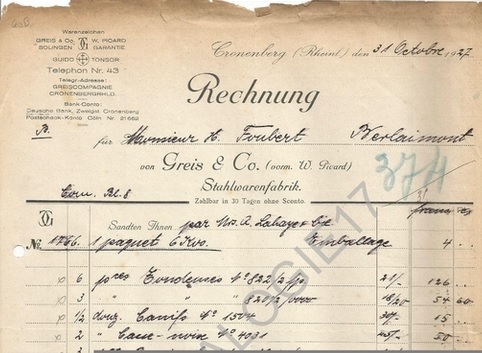 Warenzeichen
GREIS & Co. W. PICARD
SOLINGEN GARANTIE
GUIDO TONGOR
Telephon Nr. 43
Telegr.-Adresse:
GREISCOMPAGNIE
CRONENBERGRHLD.
Bank-Conto:
Deutsche Bank, Zweigst. Cronenberg
Postscheck-Konto Cöln Nr. 21652
Cronenberg (Rheinl.) den 31 Octobre 1927
Rechnung
für Monsieur H. Foubert Berlaimont
von Greis & Co. (vorm. W. Picard)
374
Stahlwarenfabrik.
Zahlbar in 30 Tagen ohne Sconto.
Sandten Ihnen par
No. 1 paquet 6 Kos. Emballage 4
6 pces Tondeuses No 822/2 21/- 126
3 " " 820/2/0000 18/20 54 60
1/2 douz. Canifs No 1504 30/- 15
2 " Casse-noix No 4031 25/- 50
ALOGIE17